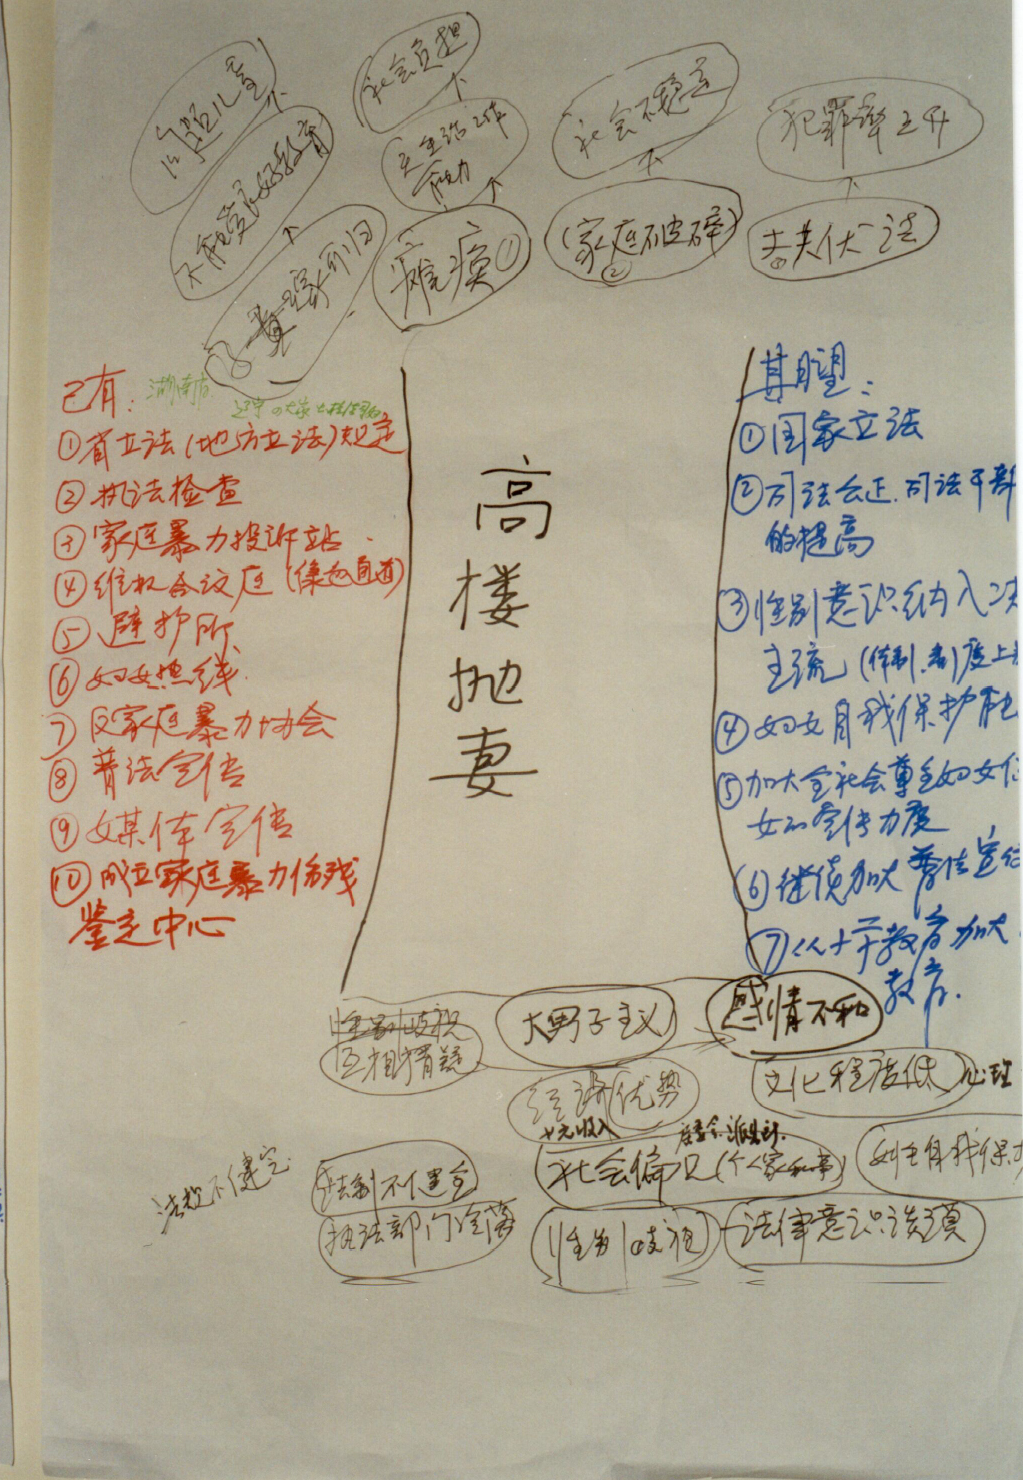 问题儿童
社会负担
社会不稳定
犯罪率上升
不能受良好教育
无生活工作
能力
有家可归
瘫痪①
家庭破碎
②
丈夫伏法
已有：
湖南省
①省立法(地方立法)规定
②执法检查
③家庭暴力投诉站
④维权合议庭
⑤避护所
⑥妇女热线
⑦反家庭暴力协会
⑧普法宣传
⑨媒体宣传
⑩成立家庭暴力伤残
鉴定中心
高
楼
抛
妻
其月望：
①国家立法
②司法公正.司法干部
的提高
③性别意识纳入决
主流(体制、制度上
④妇女自我保护能
⑤加大全社会尊重妇女
女的宣传力度
⑥继续加大普法宣传
⑦从小学教育加大
教育.
性别歧视
互相猜疑
大男子主义
感情不和
经济优势
文化程度低
心理
法制不健全
执法部门冷落
社会偏见(个人家私事)
性别歧视
法律意识淡漠
女性自我保